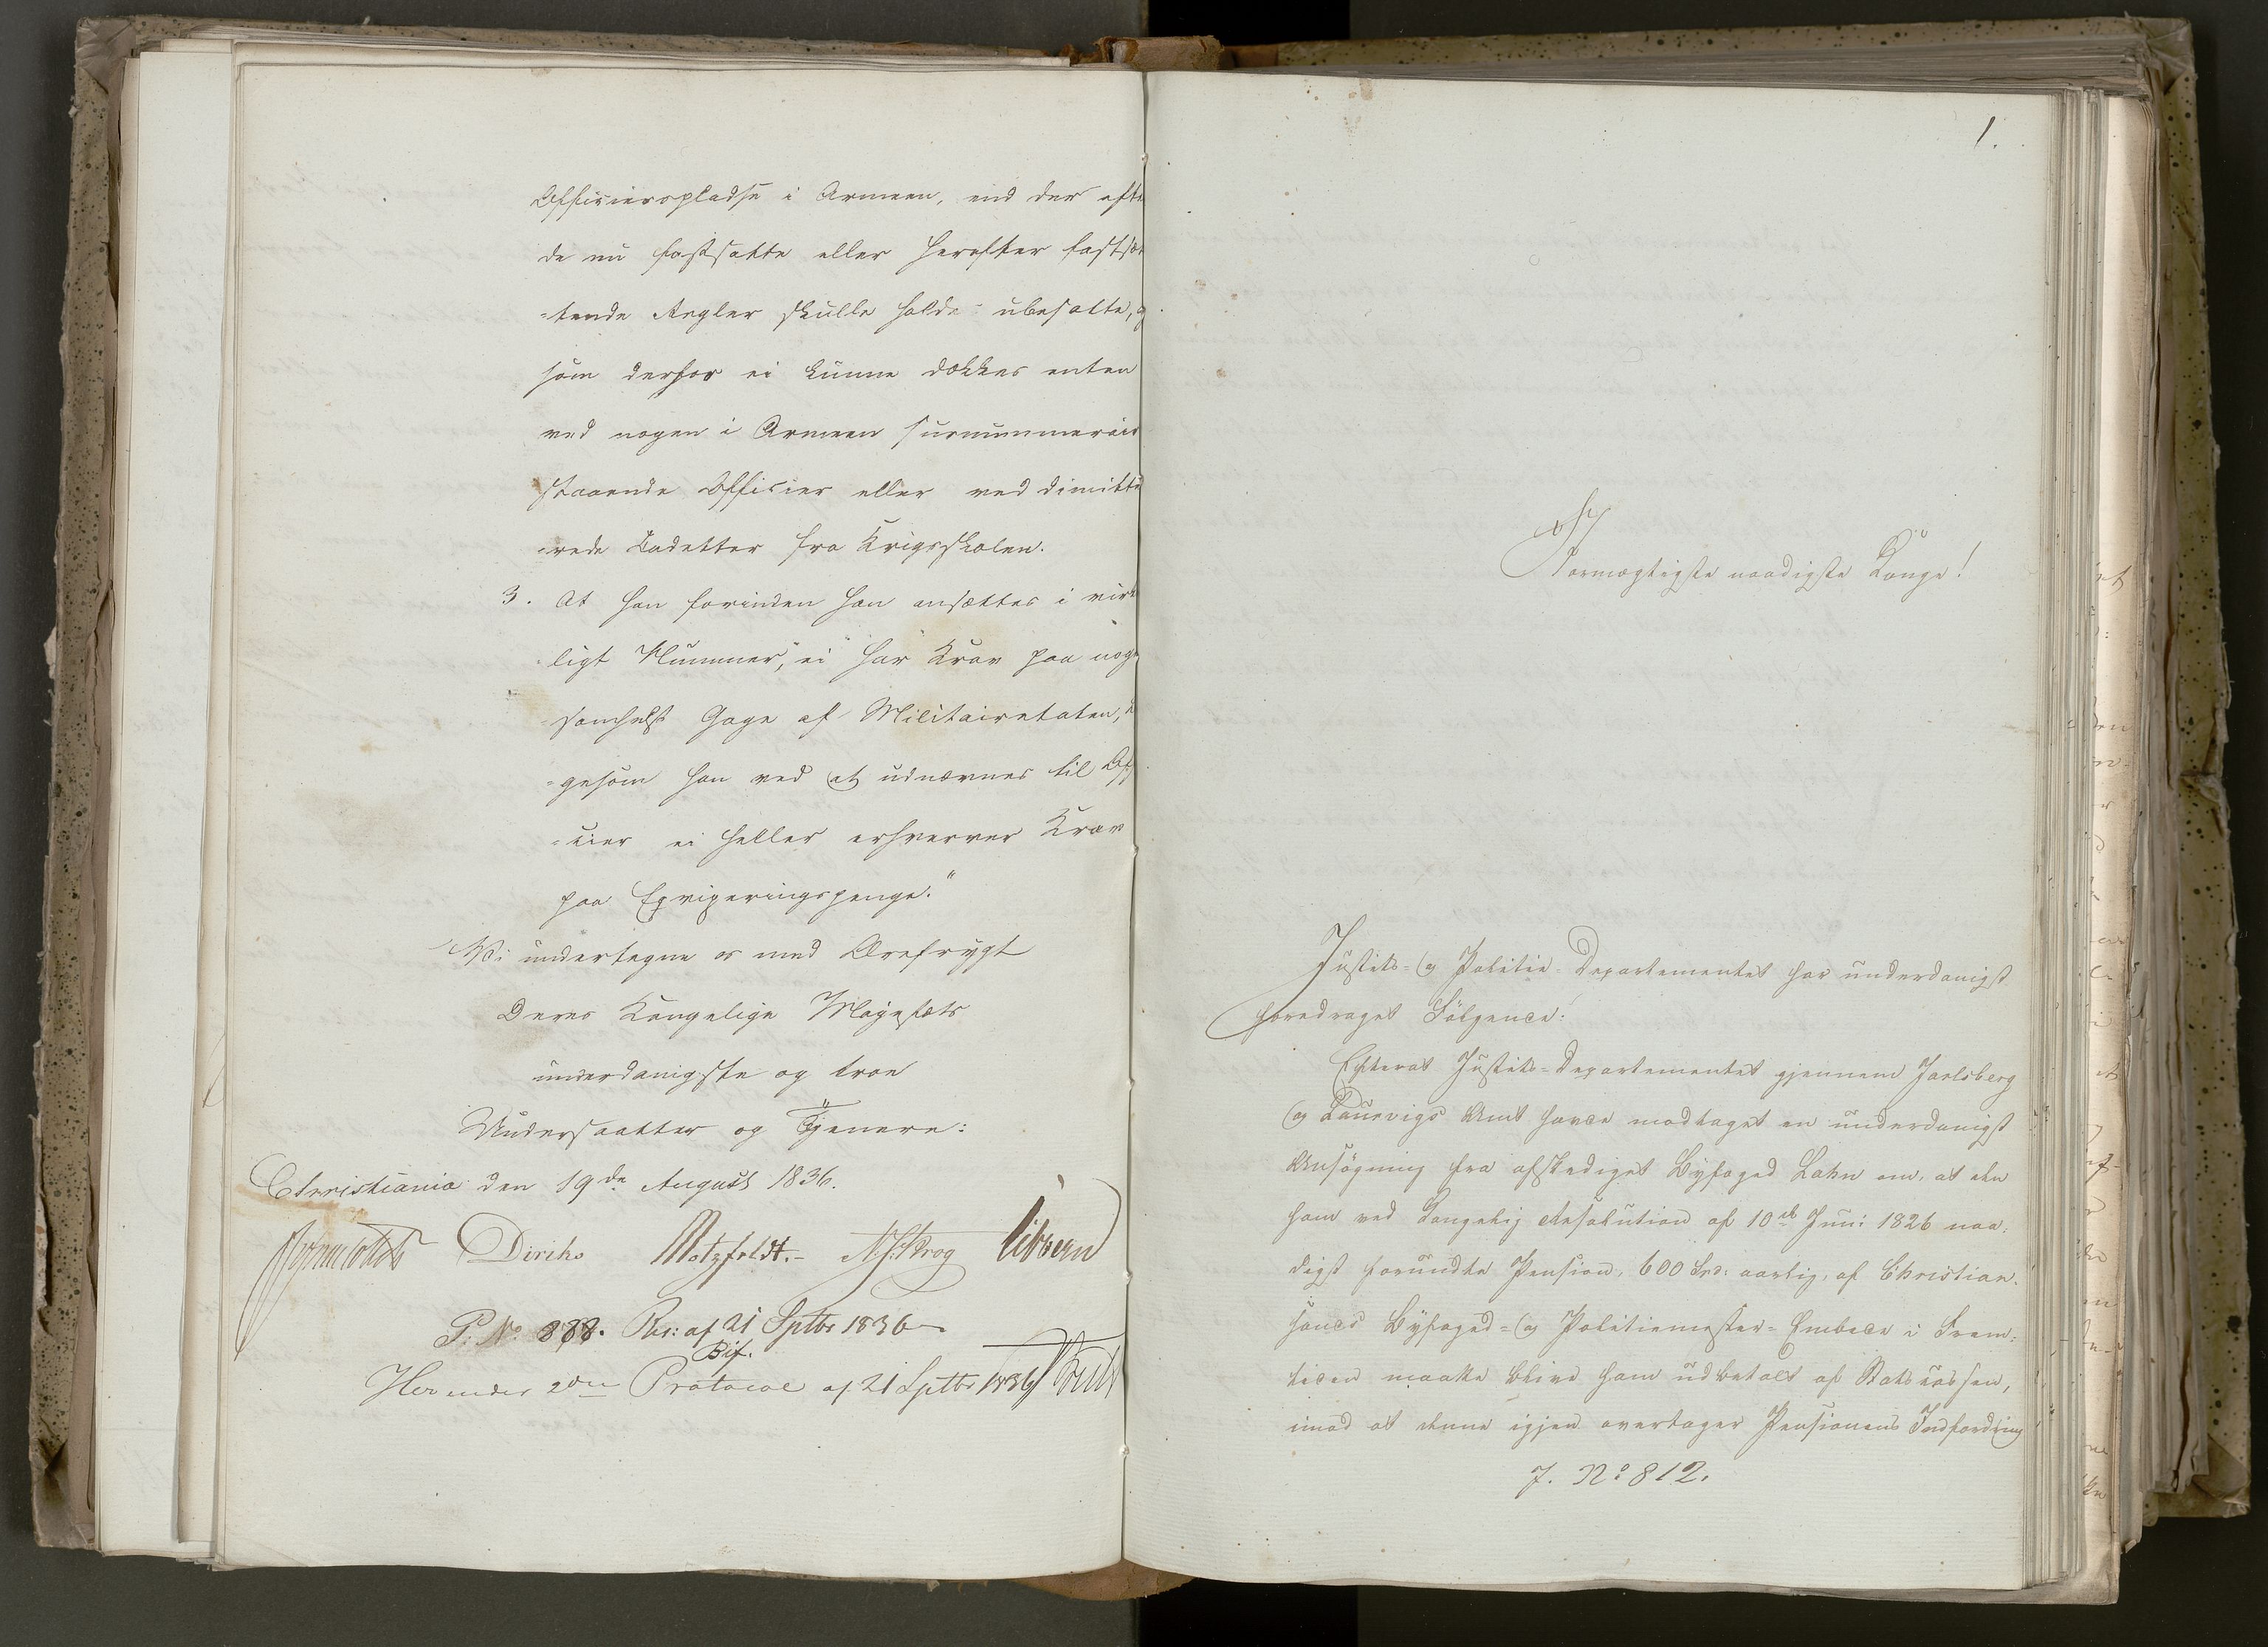 Officierspladse i Armeen, end der efte
de nu fastsatte eller herefter fastsæt
=tende Regler skulle holdes ubesatte, og
som derfor ei kunne dækkes enten
ved nogen i Armeen surnummerair
staaende Officier eller ved dimitte
=rede Cadetter fra Krigsskolen.
3. At han forinden han ansættes i virke
=ligt Nummer, ei har Krav paa noge
=somhelst Gage af Militairetaten,
=gesom han ved at udnævnes til Offi
=cier ei heller erhverver Krav
paa Eqviperingspenge."
Vi undertegne os med Ærefrygt
Deres Kongelige Majestæts
underdanigste og troe
Undersaatter og Tjenere:
Christiania den 19de August 1836.
Diriks Motzfeldt. N. J. Krog Vibe
P. No. 888. Res: af 21 Septbr 1836
Bif.
Herunder Protocol af 21 Septbr 1836
1.
Stormægtigste naadigste Konge!
Justits- og Politie-Departementet har underdanigst
foredraget Følgende:
Efterat Justits-Departementet gjennem Jarlsberg
og Laurvigs Amt havde modtaget en underdanigst
Ansøgning fra afskediget Byfoged Lahn om, at den
ham ved Kongelig Resolution af 10de Juni 1826 naa-
digst forundte Pension, 600 Spd: aarlig, af Christian-
sands Byfoged- og Politiemester-Embede i Frem-
tiden maatte blive ham udbetalt af Statskassen,
imod at denne igjen overtager Pensionens Indfordring
J. No 812.